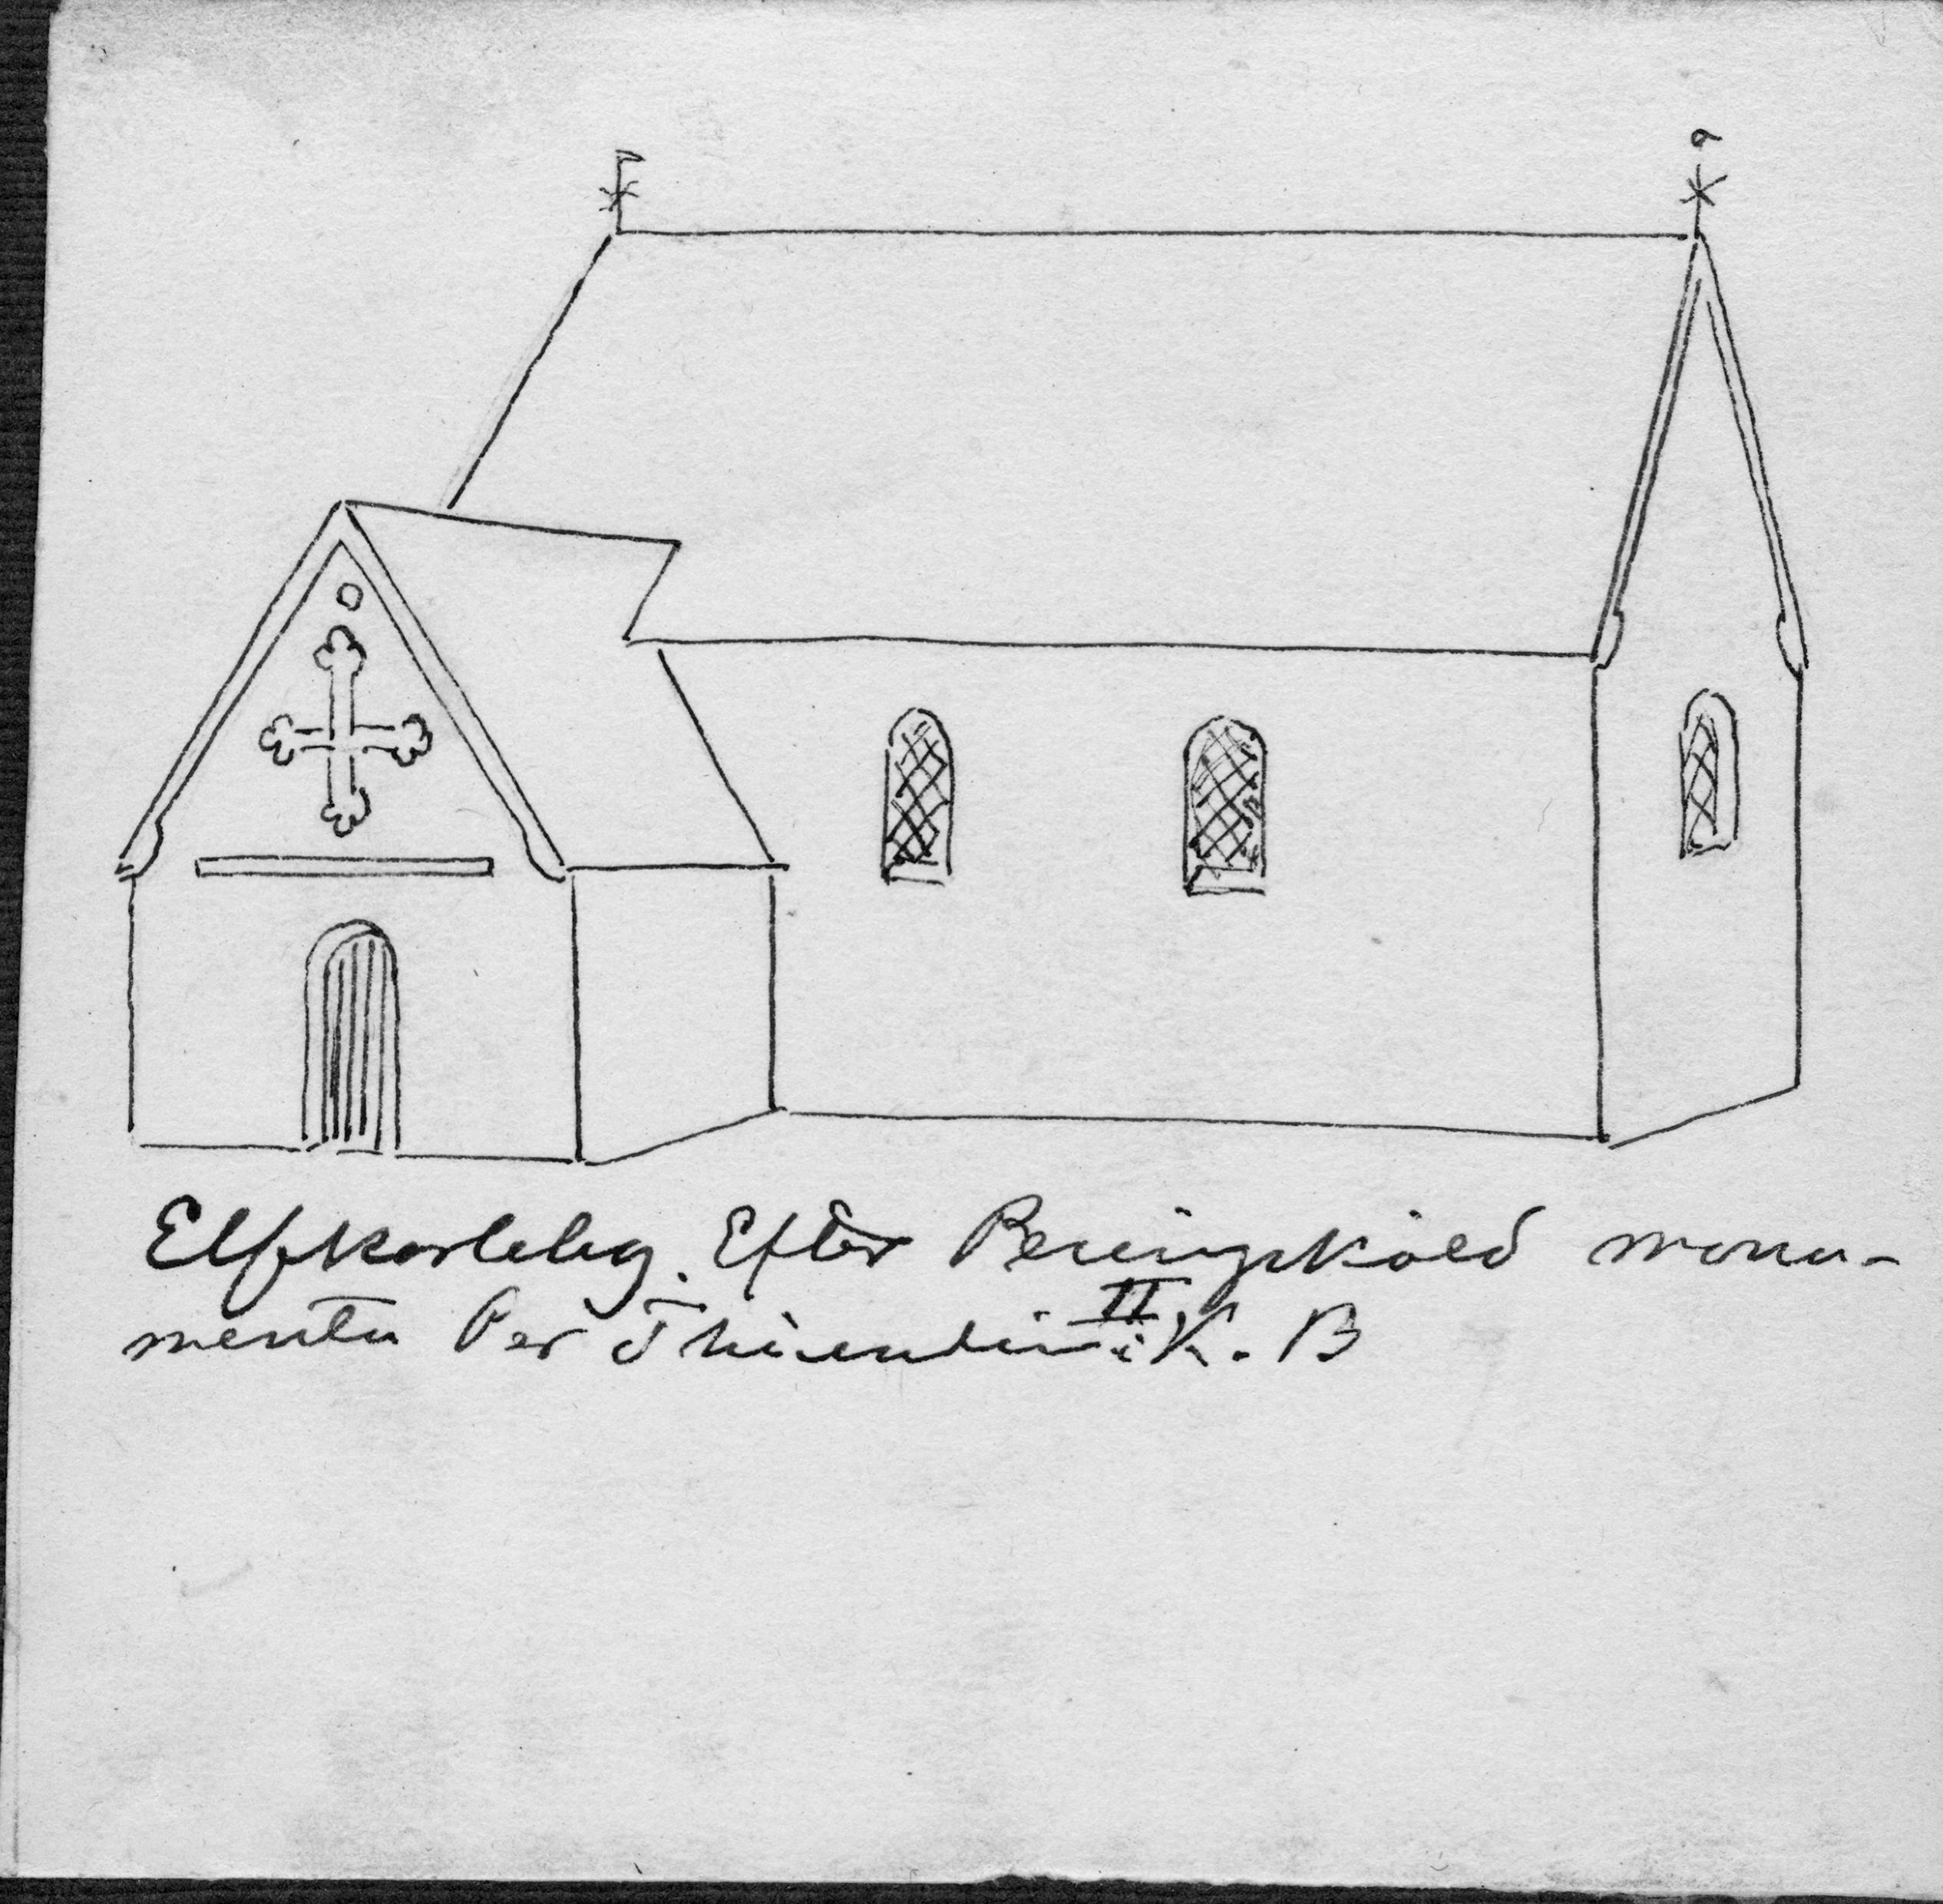 Elfkarleby. Efter Peringskiöld monu-
menta Per Thiundiam II i K. B